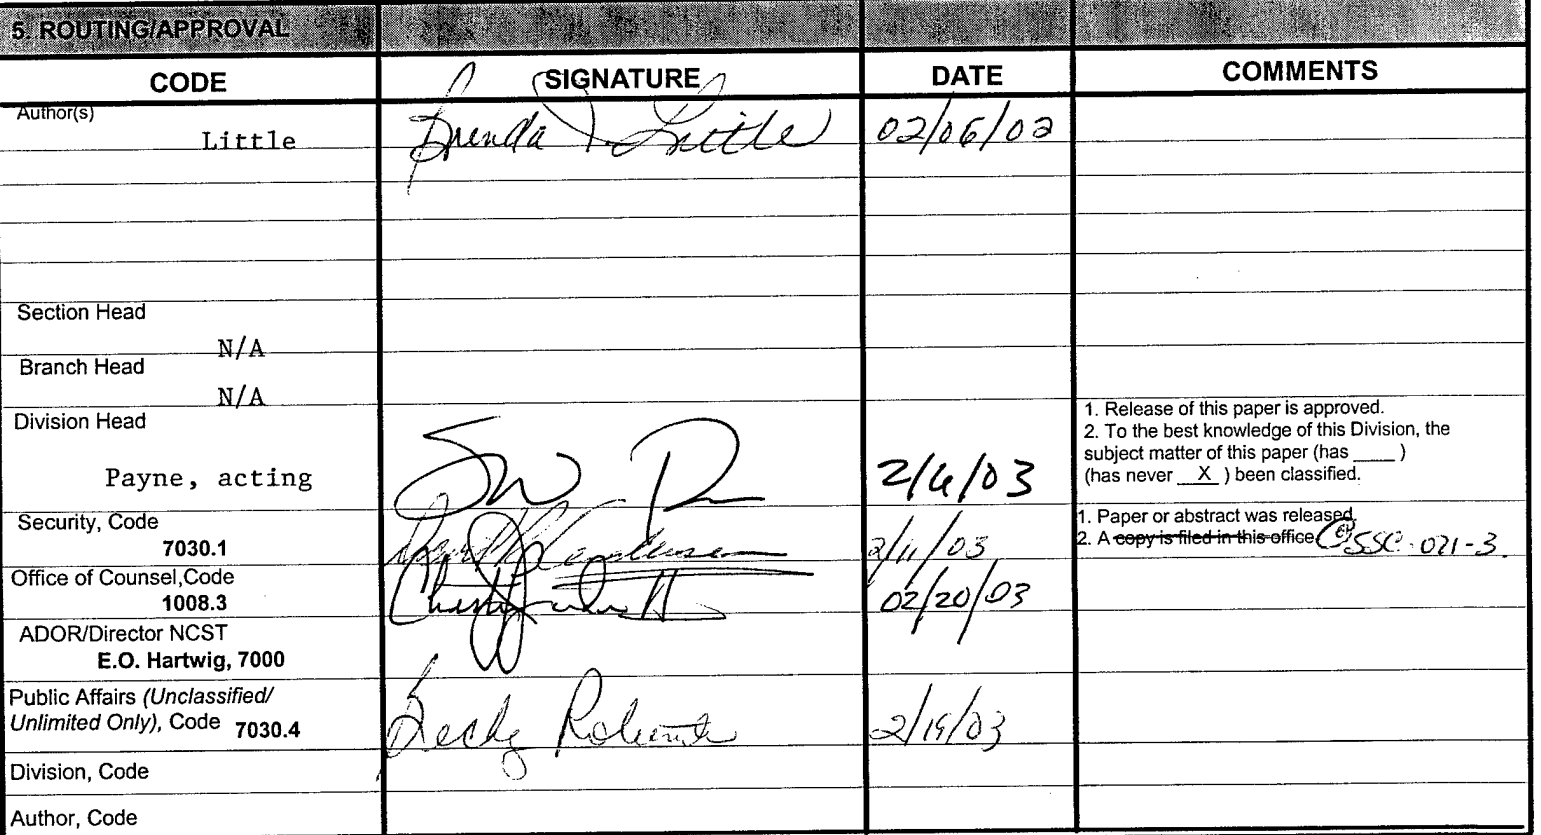 5. ROUTING/APPROVAL
CODE SIGNATURE DATE COMMENTS
Author(s)
Little Brenda J Little 02/06/02
Section Head
N/A
Branch Head
N/A
Division Head
1. Release of this paper is approved.
2. To the best knowledge of this Division, the
subject matter of this paper (has ____ )
Payne, acting 2/6/03
(has never __X__ ) been classified.
Security, Code
7030.1 2/11/03
1. Paper or abstract was released.
2. A copy is filed in this office SSC-021-3.
Office of Counsel,Code
1008.3 02/20/03
ADOR/Director NCST
E.O. Hartwig, 7000
Public Affairs (Unclassified/
Unlimited Only), Code 7030.4 2/19/03
Division, Code
Author, Code